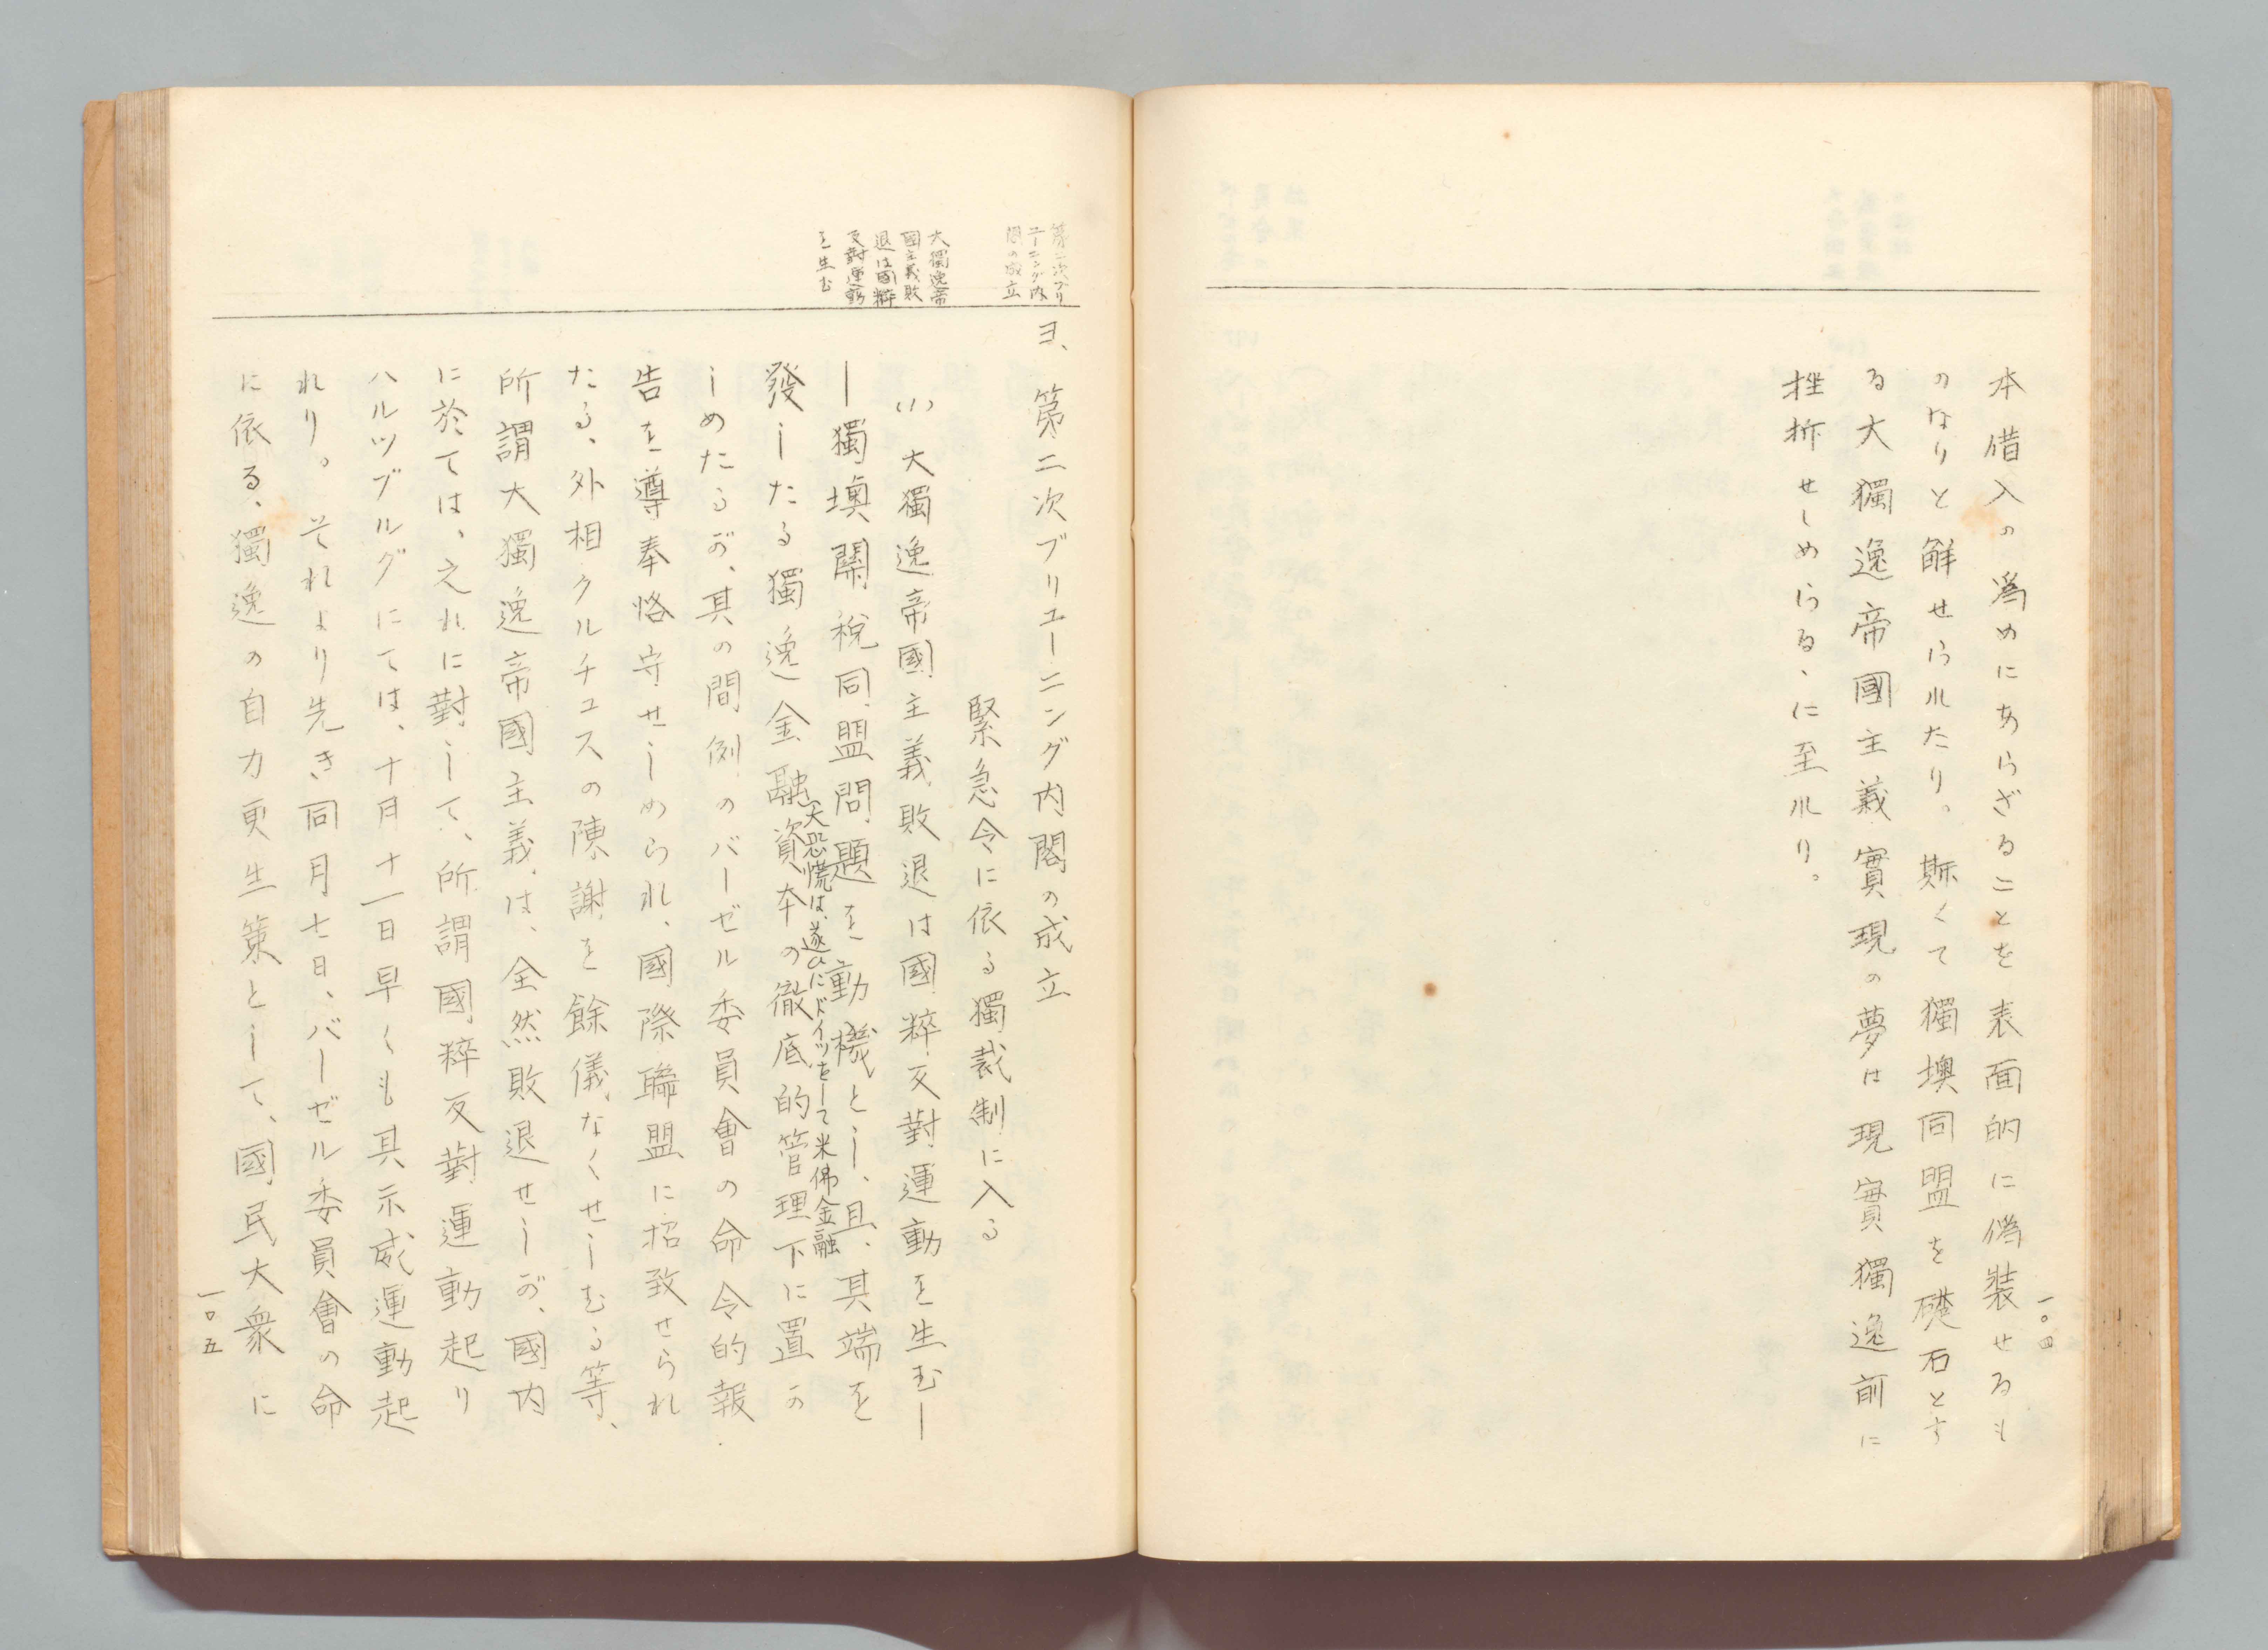 本借入の為めにあらざることを表面的に偽装せるも
のなりと解せられたり。斯くて獨墺同盟を礎石とす
る大獨逸帝國主義實現の夢は現實獨逸前に
挫折せしめらるゝに至れり。
一〇四
第二次ブリ
ユーニング内
閣の成立
大獨逸帝
國主義敗
退は國粹
反對運動
を生む
ヨ、第二次ブリューニング内閣の成立
緊急令に依る獨裁制に入る
(1) 大獨逸帝國主義敗退は國粹反對運動を生む―
―獨墺關税同盟問題を動機とし、且、其端を
發したる獨逸金融大恐慌は、遂ひにドイツをして米佛金融
資本の徹底的管理下に置か
しめたるが、其の間例のバーゼル委員會の命令的報
告を遵奉恪守せしめられ、國際聯盟に招致せられ
たる、外相クルチュスの陳謝を餘儀なくせしむる等、
所謂大獨逸帝國主義は、全然敗退せしが、國内
に於ては、之れに對して、所謂國粹反對運動起り
ハルツブルグにては、十月十一日早くも其示威運動起
れり。それより先き同月七日、バーゼル委員會の命
に依る、獨逸の自力更生策として、國民大衆に
一〇五